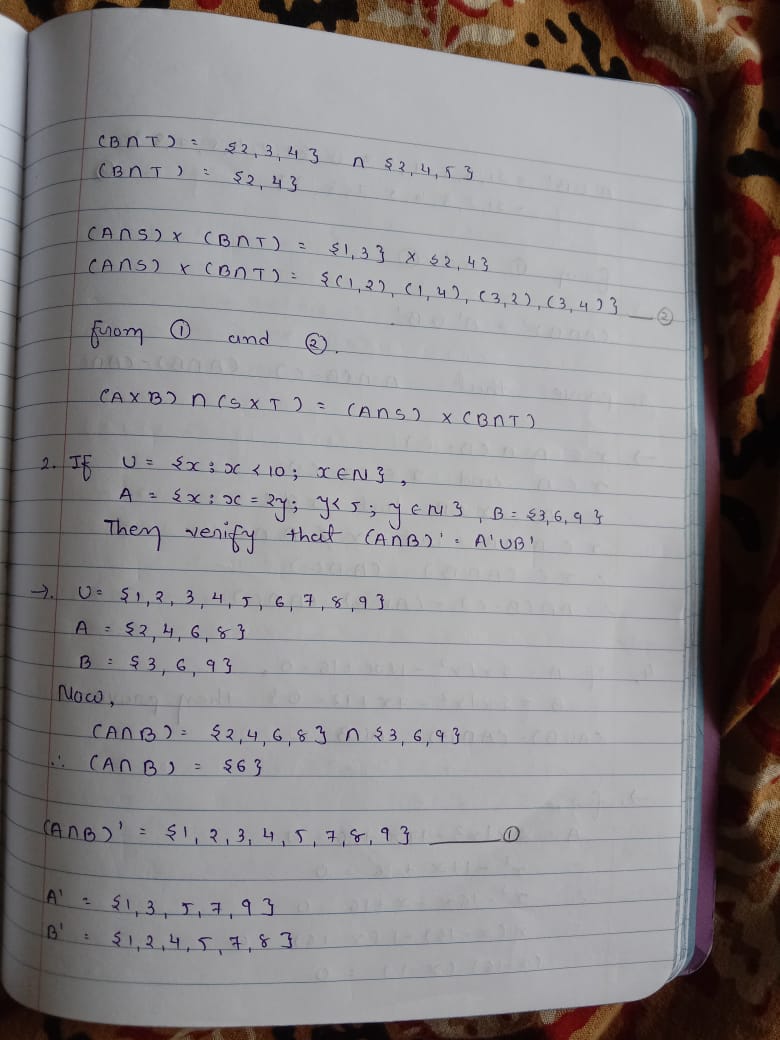 (B∩T) = {2,3,4} ∩ {2,4,5}
(B∩T) = {2,4}
(A∩S) × (B∩T) = {1,3} × {2,4}
(A∩S) × (B∩T) = {(1,2), (1,4), (3,2), (3,4)} — ②
from ① and ②.
(A×B) ∩ (S×T) = (A∩S) × (B∩T)
2. If U = {x : x < 10 ; x ∈ N},
A = {x : x = 2y ; y < 5 ; y ∈ N}, B = {3,6,9}
Then verify that (A∩B)' = A'∪B'
→. U = {1, 2, 3, 4, 5, 6, 7, 8, 9}
A = {2, 4, 6, 8}
B = {3, 6, 9}
Now,
(A∩B) = {2,4,6,8} ∩ {3,6,9}
∴ (A∩B) = {6}
(A∩B)' = {1, 2, 3, 4, 5, 7, 8, 9} — ①
A' = {1, 3, 5, 7, 9}
B' = {1, 2, 4, 5, 7, 8}